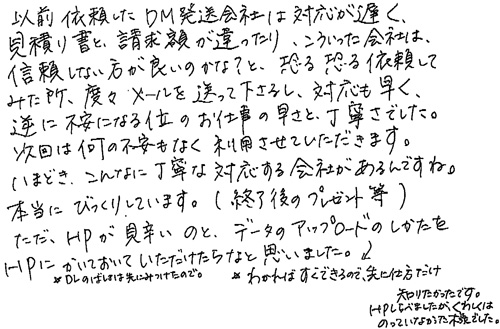 以前依頼したDM発送会社は対応が遅く、
見積り書と、請求額が違ったり、こういった会社は、
信頼しない方が良いのかな?と、恐る恐る依頼して
みた所、度々メールを送って下さるし、対応も早く、
逆に不安になる位のお仕事の早さと、丁寧さでした。
次回は何の不安もなく利用させていただきます。
いまどき、こんなに丁寧な対応する会社があるんですね。
本当にびっくりしています。(終了後のプレゼント等)
ただ、HPが見辛いのと、データのアップロードのしかたを
HPにかいておいていただけたらなと思いました。↙
※DLのばしょは先にみつけたので。 ※わかればすぐできるので、先に仕方だけ
知りたかったです。
HPしらべましたが、くわしくは
のっていなかった様でした。